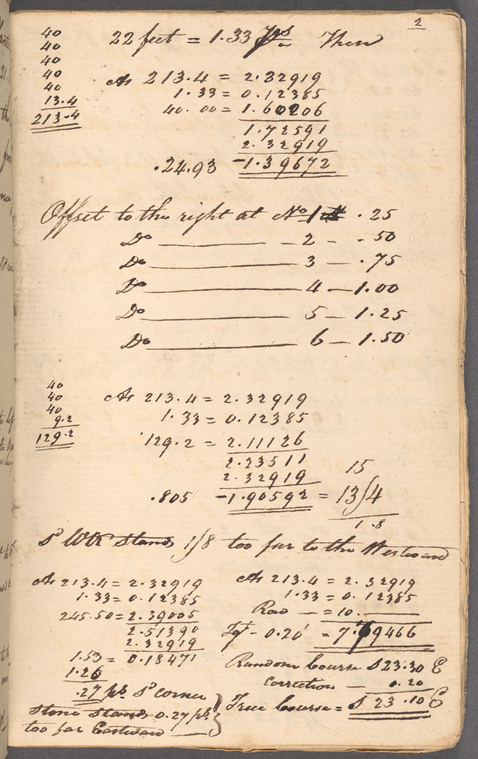 2
40
40
40
40
40
13.4
213.4
22 feet = 1.33 Then
As 213.4 = 2.32919
1.33 = 0.12385
40.00 = 1.60206
1.72591
2.32919
.24.93 -1.39672
Offset to the right at No 1 .25
Do 2 - .50
Do 3 - .75
Do 4 - 1.00
Do 5 - 1.25
Do 6 - 1.50
40
40
40
9.2
129.2
As 213.4 = 2.32919
1.33 = 0.12385
129.2 = 2.11126
2.23511
2.32919
.805 -1.90592 =
15
13/4
1.8
1/8 too far to the Westward
As 213.4 = 2.32919
1.33 = 0.12385
245.50 = 2.39005
2.51390
2.32919
1.53 = 0.18471
1.26
.27 ps. So corner
Stone stands 0.27 ps.
too far Eastward
As 213.4 = 2.32919
1.33 = 0.12385
Rad = 10.
Tgt - 0.20' = 7.79466
Random Course S 23.30 E
Correction 0.20
True Course = S 23.10 E